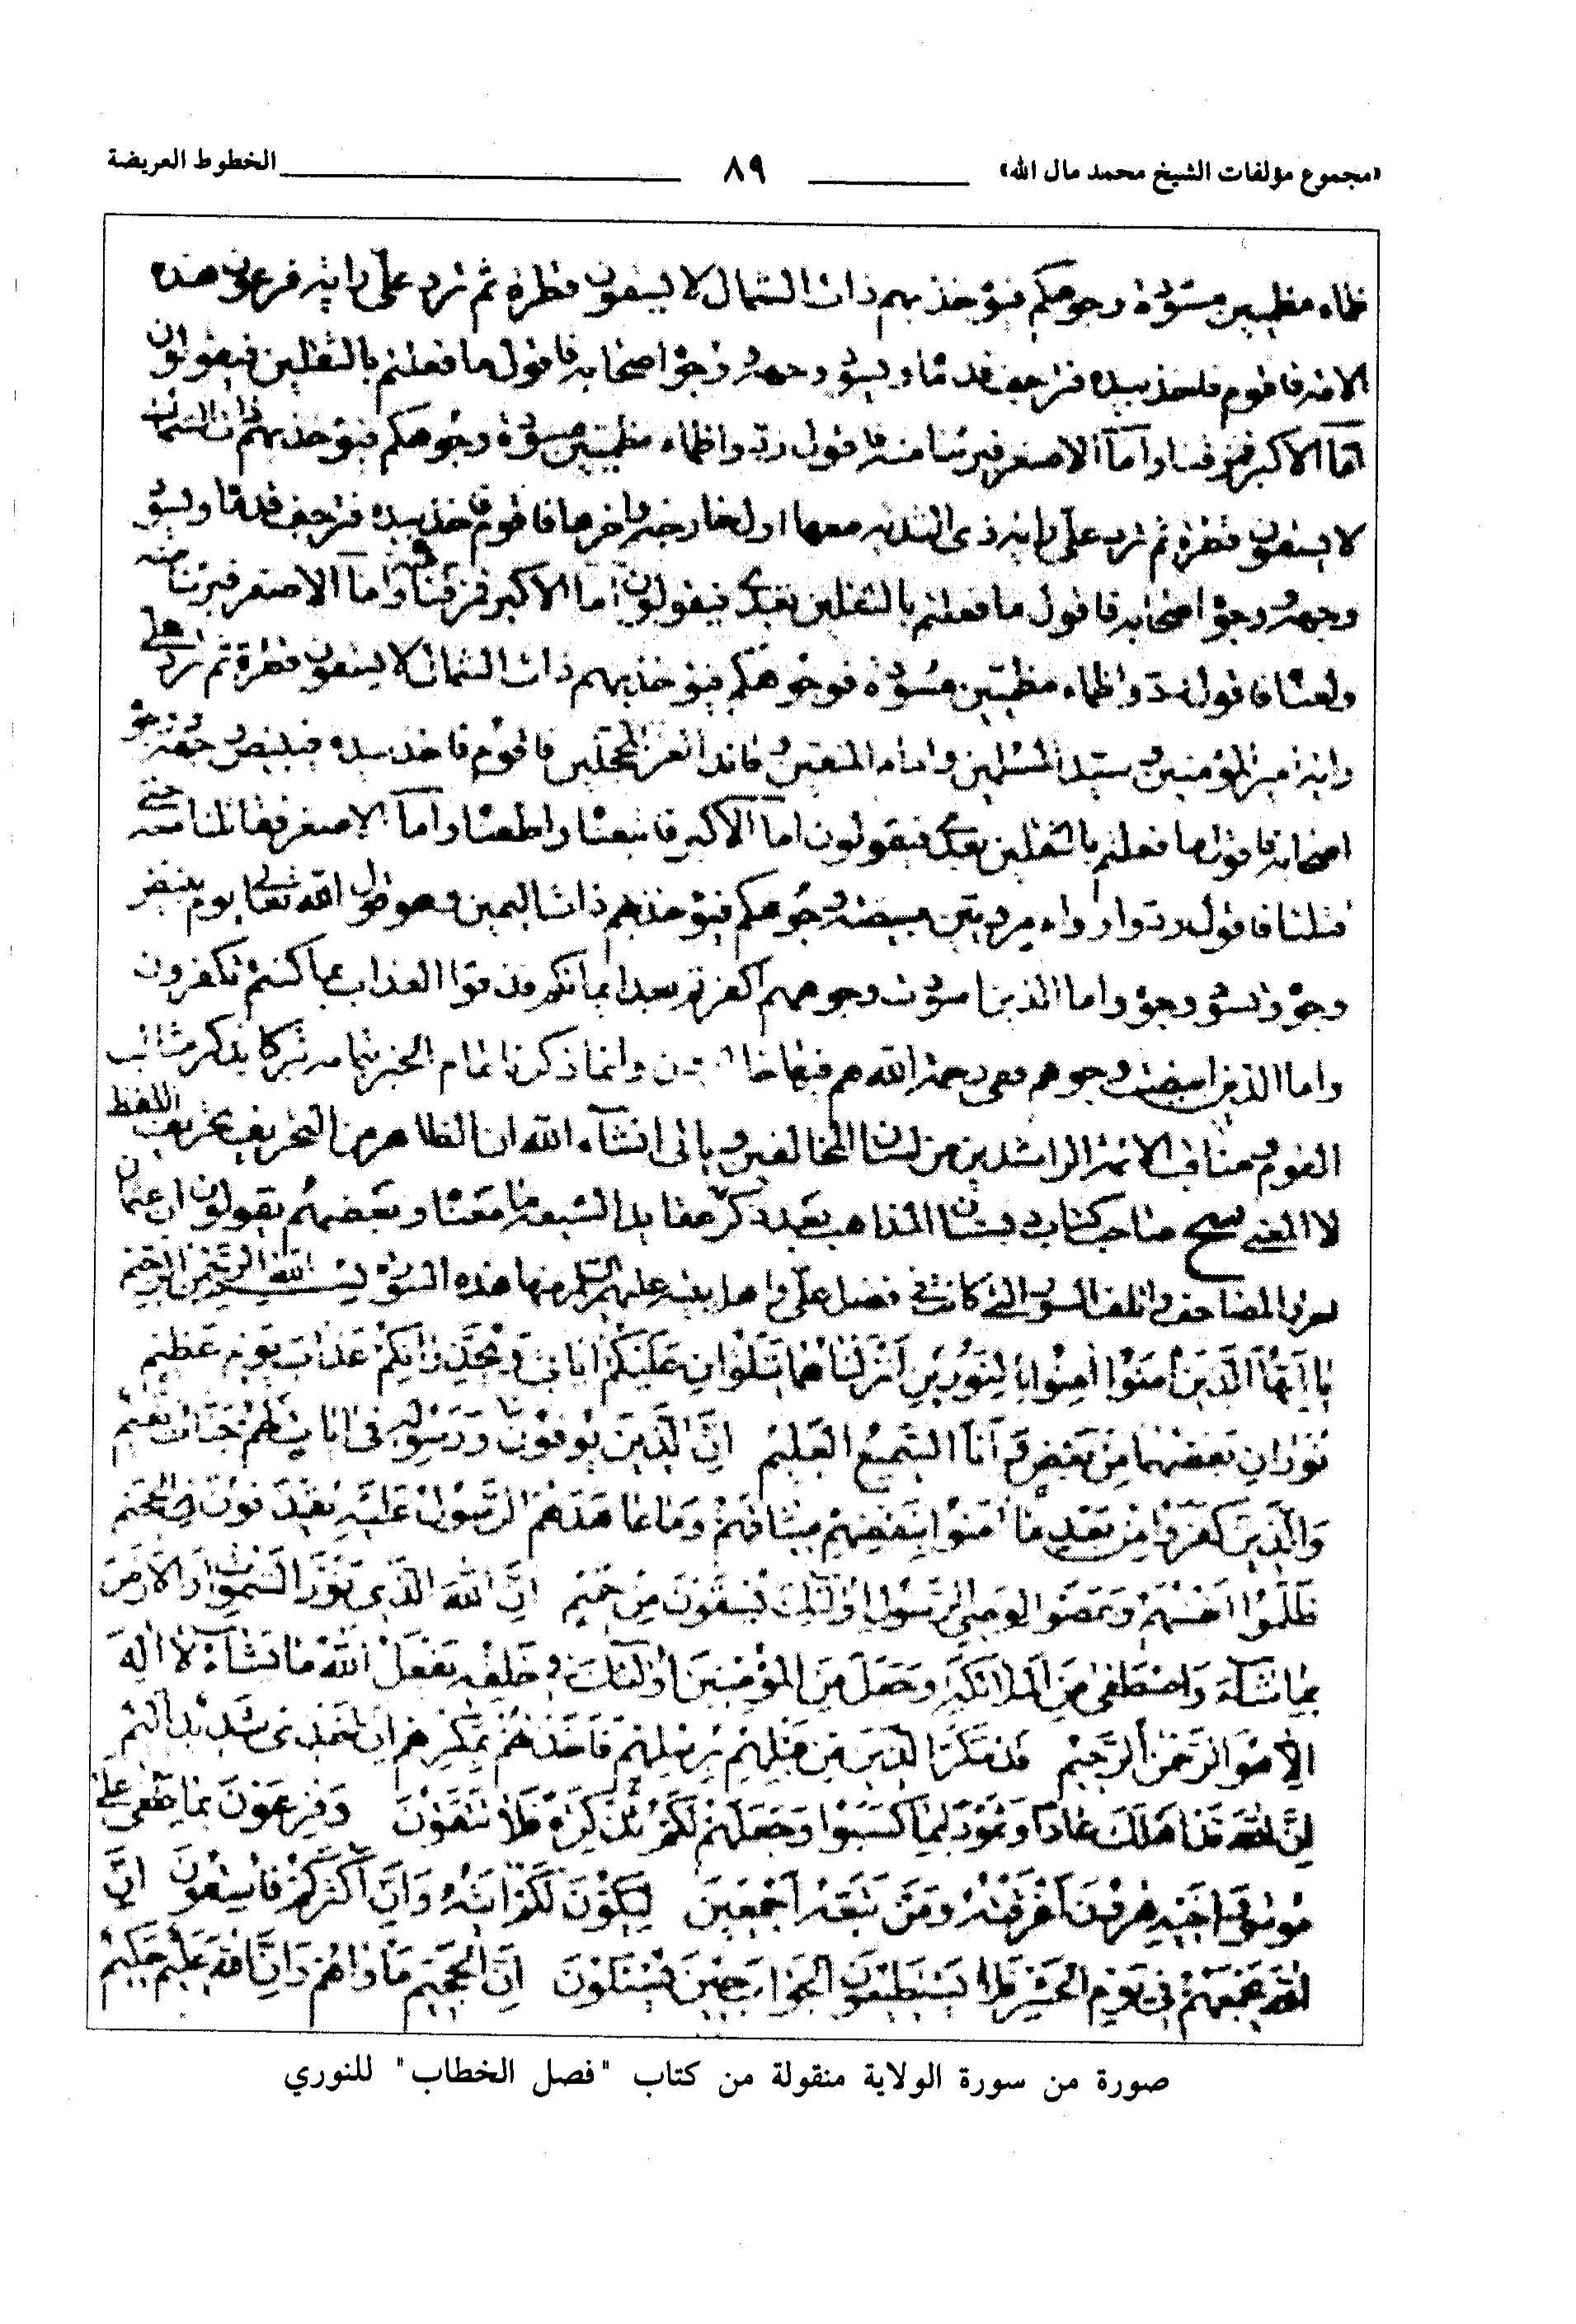 «مجموع مؤلفات الشيخ محمد مال الله» ٨٩ الخطوط العريضة
ظماء مظمئين مسودة وجوهكم فيؤخذ بهم ذات الشمال لا يسقون قطرة ثم ترد على راية فرعون هذه
الامة فاقوم فاخذ بيده فترجف قدماه ويسود وجهه ووجوه اصحابه فاقول ما فعلتم بالثقلين فيقولون
اما الاكبر فمزقنا واما الاصغر فبرئنا منه فاقول ردوا ظماء مظمئين مسودة وجوهكم فيؤخذ بهم ذات الشمال
لا يسقون قطرة ثم ترد على راية ذي الثدية معها اول خارجة واخرها فاقوم فاخذ بيده فترجف قدماه ويسود
وجهه ووجوه اصحابه فاقول ما فعلتم بالثقلين بعدي فيقولون اما الاكبر فمزقنا واما الاصغر فبرئنا منه
ولعنا فاقول ردوا ظماء مظمئين مسودة وجوهكم فيؤخذ بهم ذات الشمال لا يسقون قطرة ثم ترد على
راية امير المؤمنين وسيد المسلمين وامام المتقين وقائد الغر المحجلين فاقوم فاخذ بيده فيبيض وجهه ووجوه
اصحابه فاقول ما فعلتم بالثقلين بعدي فيقولون اما الاكبر فاتبعنا واطعنا واما الاصغر فقاتلنا معه حتى
قتلنا فاقول ردوا رواء مرويين مبيضة وجوهكم فيؤخذ بهم ذات اليمين وهو قول الله تعالى يوم تبيض
وجوه وتسود وجوه واما الذين اسودت وجوههم اكفرتم بعد ايمانكم فذوقوا العذاب بما كنتم تكفرون
واما الذين ابيضت وجوههم ففي رحمة الله هم فيها خا ن وانما ذكرنا تمام الخبر بتمامه تبركا بذكر مثالب
القوم ومناقب الائمة الراشدين من لسان المخالفين وياتى انشاء الله ان الظاهر من التحريف تحريف اللفظ
لا المعنى صاحب كتاب دبستان المذاهب بعد ذكر عقايد الشيعة ما معناه وبعضهم يقولون ان عثمان
المصاحف واتلف السور التي كانت في فضل علي واهل بيته عليهم السلم منها هذه السورة بسم الله الرحمن الرحيم
يَا أَيُّهَا الَّذِينَ آمَنُوا آمِنُوا بِالنُّورَيْنِ أَنْزَلْنَاهُمَا يَتْلُوَانِ عَلَيْكُمْ آيَاتِي وَيُحَذِّرَانِكُمْ عَذَابَ يَوْمٍ عَظِيمٍ
نُورَانِ بَعْضُهُمَا مِنْ بَعْضٍ وَأَنَا السَّمِيعُ الْعَلِيمُ إِنَّ الَّذِينَ يُوفُونَ وَرَسُولِهِ فِي آيَاتٍ لَهُمْ جَنَّاتُ نَعِيمٍ
وَالَّذِينَ كَفَرُوا مِنْ بَعْدِ مَا آمَنُوا بِنَقْضِهِمْ مِيثَاقَهُمْ وَمَا عَاهَدَهُمُ الرَّسُولُ عَلَيْهِ يُقْذَفُونَ فِي الْجَحِيمِ
ظَلَمُوا أَنْفُسَهُمْ وَعَصَوُا لِوَصِيِّ الرَّسُولِ أُولَئِكَ يُسْقَوْنَ مِنْ حَمِيمٍ إِنَّ اللَّهَ الَّذِي نَوَّرَ السَّمَوَاتِ وَالْأَرْضَ
بِمَا شَاءَ وَاصْطَفَى مِنَ الْمَلَائِكَةِ وَجَعَلَ مِنَ الْمُؤْمِنِينَ أُولَئِكَ فِي خَلْقِهِ يَفْعَلُ اللَّهُ مَا يَشَاءُ لَا إِلَهَ
إِلَّا هُوَ الرَّحْمَنُ الرَّحِيمُ قَدْ مَكَرَ الَّذِينَ مِنْ قَبْلِهِمْ بِرُسُلِهِمْ فَأَخَذْتُهُمْ بِمَكْرِهِمْ إِنَّ أَخْذِي شَدِيدٌ أَلِيمٌ
إِنَّ اللَّهَ قَدْ أَهْلَكَ عَادًا وَثَمُودَ بِمَا كَسَبُوا وَجَعَلَهُمْ لَكُمْ تَذْكِرَةً فَلَا تَتَّقُونَ وَفِرْعَوْنَ بِمَا طَغَى عَلَى
مُوسَى وَأَخِيهِ هَارُونَ أَغْرَقْتُهُ وَمَنْ تَبِعَهُ أَجْمَعِينَ لِيَكُونَ لَكُمْ آيَتُهُ وَإِنَّ أَكْثَرَكُمْ فَاسِقُونَ إِنَّ
اللَّهَ يَجْمَعُهُمْ فِي يَوْمِ الْحَشْرِ فَلَا يَسْتَطِيعُونَ الْجَوَابَ حِينَ يُسْئَلُونَ إِنَّ الْجَحِيمَ مَأْوَاهُمْ وَإِنَّ اللَّهَ عَلِيمٌ حَكِيمٌ
صورة من سورة الولاية منقولة من كتاب "فصل الخطاب" للنوري